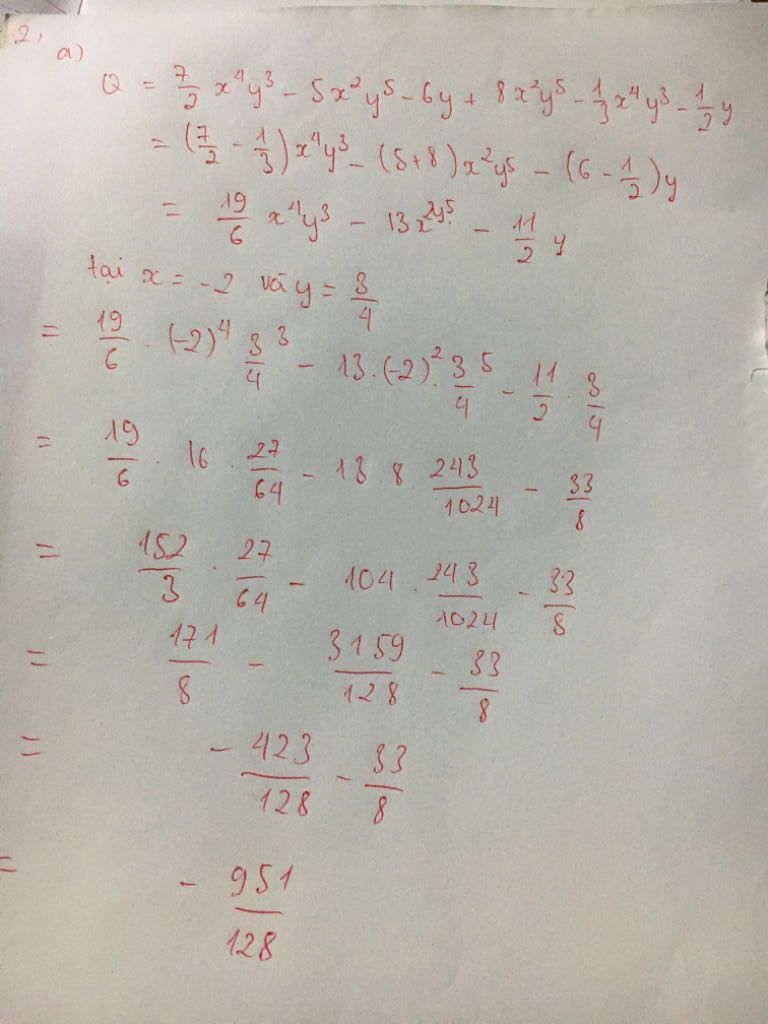 2,
a)
Q = 7/2 x⁴y³ - 5x²y⁵ - 6y + 8x²y⁵ - 1/3 x⁴y³ - 1/2 y
= (7/2 - 1/3) x⁴y³ - (5+8) x²y⁵ - (6 - 1/2) y
= 19/6 x⁴y³ - 13x²y⁵ - 11/2 y
tại x = -2 và y = 3/4
= 19/6 . (-2)⁴ 3/4 ³ - 13.(-2)². 3/4 ⁵ - 11/2 . 3/4
= 19/6 . 16 . 27/64 - 13 . 8 243/1024 - 33/8
= 152/3 . 27/64 - 104 . 243/1024 - 33/8
= 171/8 - 3159/128 - 33/8
= - 423/128 - 33/8
= - 951/128